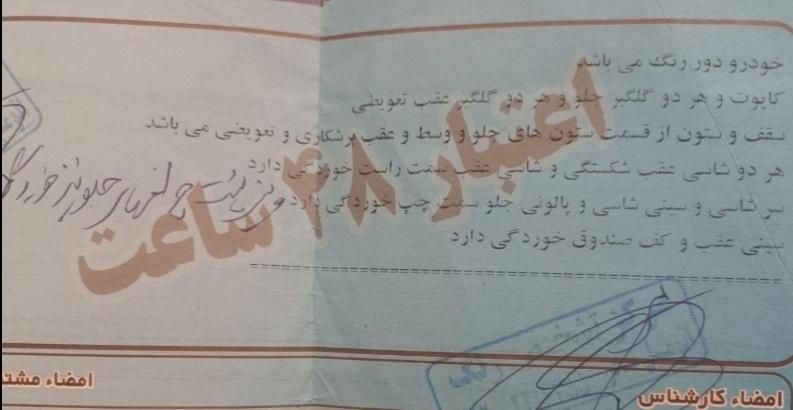 خودرو دور رنگ می باشد
کاپوت و هر دو گلگیر جلو و هر دو گلگیر عقب تعویضی
سقف و ستون از قسمت ستون های جلو و وسط و عقب برشکاری و تعویضی می باشد
هر دو شاسی عقب شکستگی و شاسی عقب سمت راست خوردگی دارد
سر شاسی و سینی شاسی و پالونی جلو سمت چپ خوردگی دارد
سینی عقب و کف صندوق خوردگی دارد
اعتبار ۴۸ ساعت
امضاء کارشناس
امضاء مشت